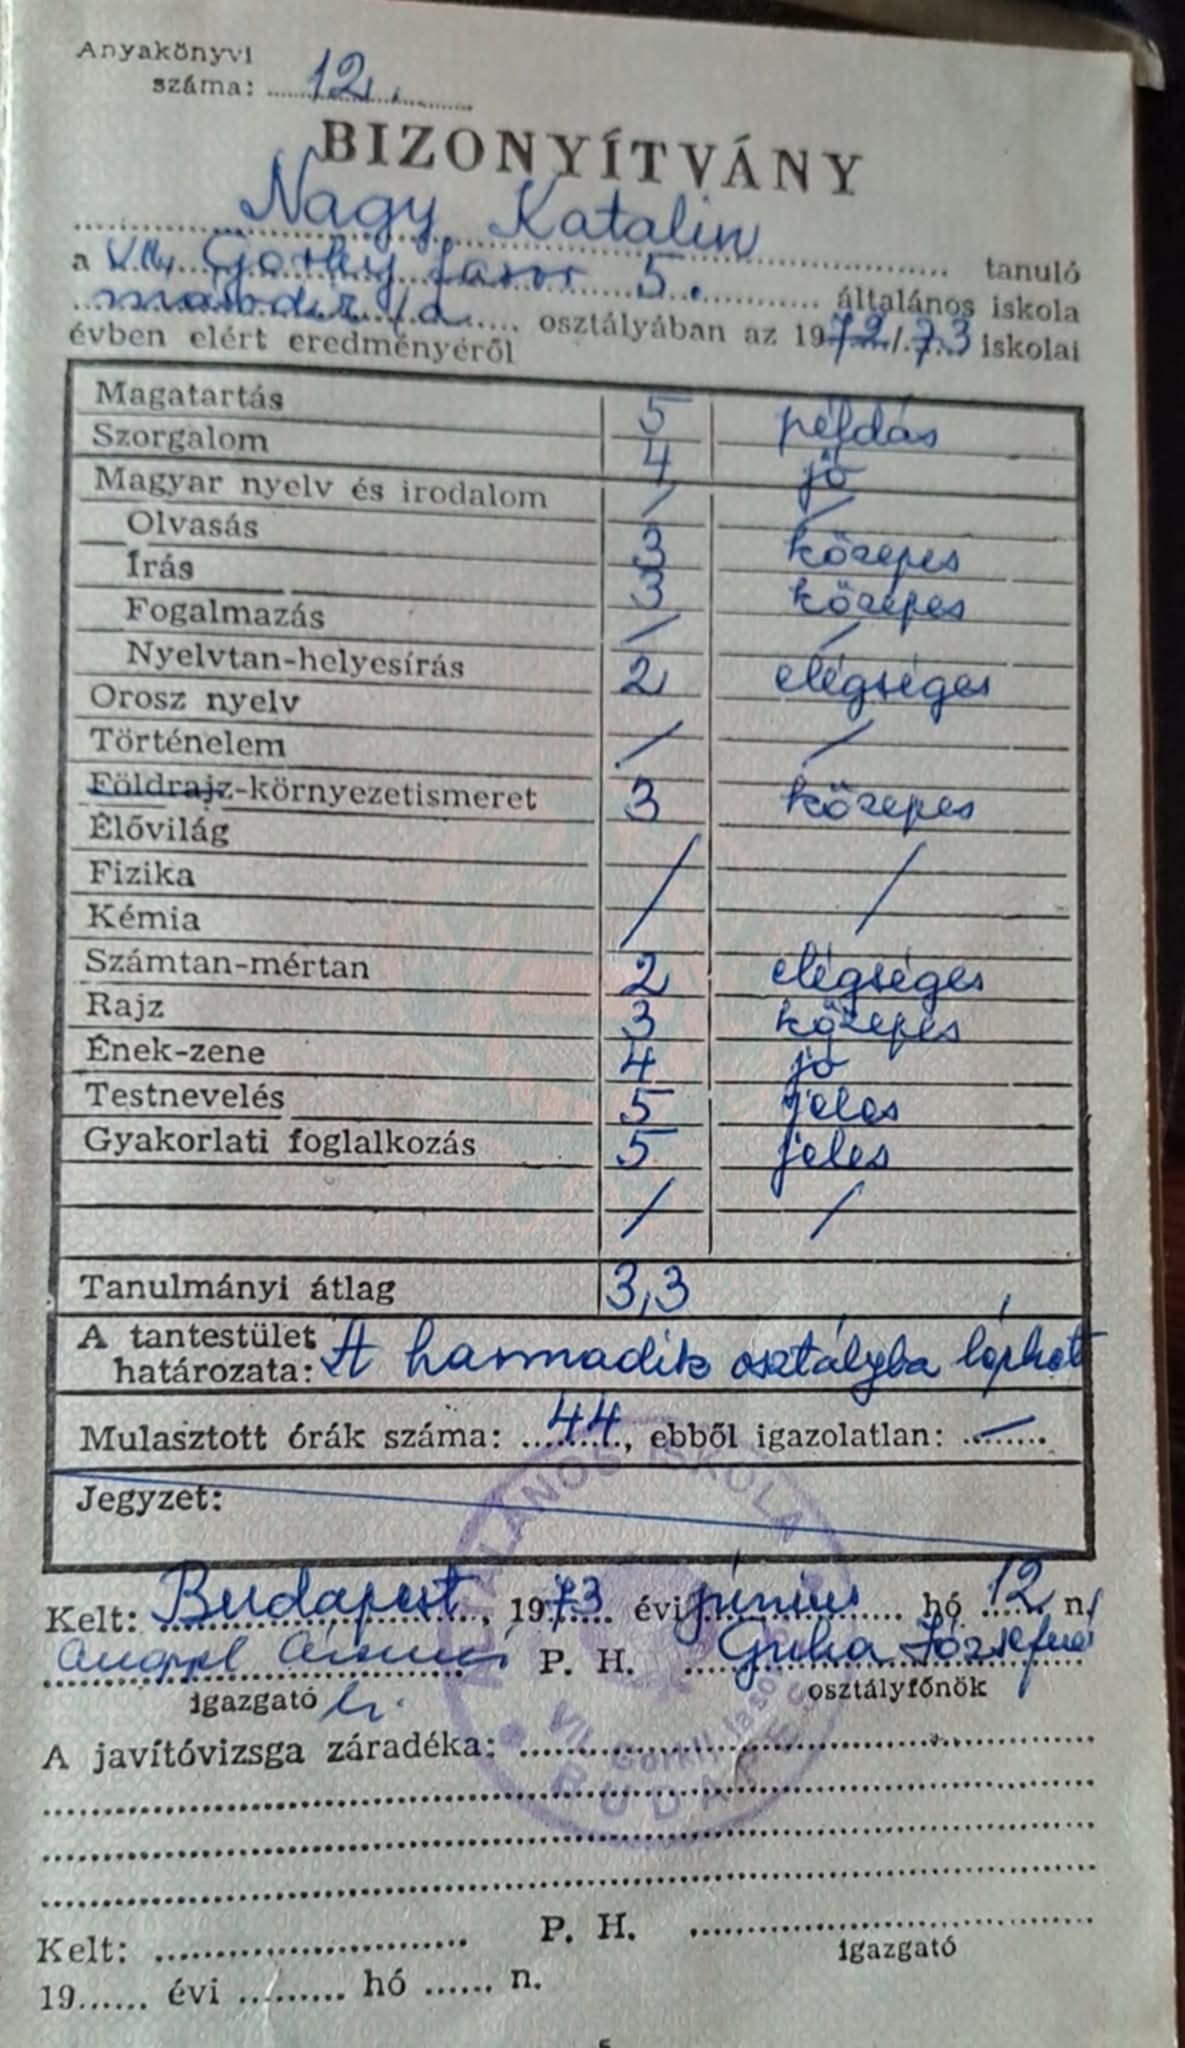 Anyakönyvi
száma: 12.
BIZONYÍTVÁNY
Nagy Katalin tanuló
a VII. Gorkij fasor 5. általános iskola
második /a osztályában az 1972/73 iskolai
évben elért eredményéről
Magatartás 5 példás
Szorgalom 4 jó
Magyar nyelv és irodalom / /
Olvasás 3 közepes
Írás 3 közepes
Fogalmazás / /
Nyelvtan-helyesírás 2 elégséges
Orosz nyelv
Történelem / /
Földrajz-környezetismeret 3 közepes
Élővilág
Fizika / /
Kémia
Számtan-mértan 2 elégséges
Rajz 3 közepes
Ének-zene 4 jó
Testnevelés 5 jeles
Gyakorlati foglalkozás 5 jeles
/ /
Tanulmányi átlag 3,3
A tantestület
határozata: A harmadik osztályba léphet
Mulasztott órák száma: 44, ebből igazolatlan: —
Jegyzet:
Kelt: Budapest, 1973 évi június hó 12 n.
P. H. Guba Józsefné
igazgató h. osztályfőnök
ÁLTALÁNOS ISKOLA
VII. Gorkij fasor 5
BUDAPEST
A javítóvizsga záradéka:
P. H.
Kelt: igazgató
19 évi hó n.